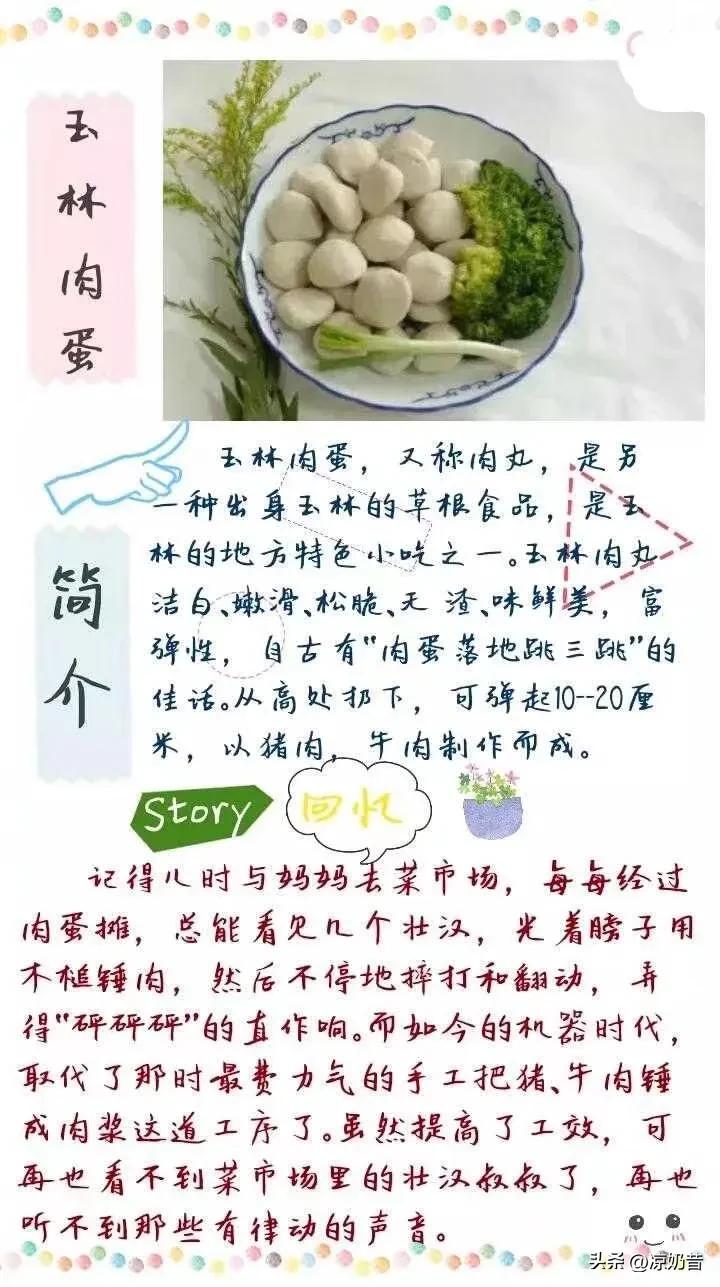 玉林肉蛋
玉林肉蛋，又称肉丸，是另
一种出身玉林的草根食品，是玉
林的地方特色小吃之一。玉林肉丸
洁白、嫩滑、松脆、无渣、味鲜美，富
弹性，自古有“肉蛋落地跳三跳”的
佳话。从高处扔下，可弹起10--20厘
米，以猪肉，牛肉制作而成。
简介
Story
回忆
记得儿时与妈妈去菜市场，每每经过
肉蛋摊，总能看见几个壮汉，光着膀子用
木槌锤肉，然后不停地摔打和翻动，弄
得“砰砰砰”的直作响。而如今的机器时代，
取代了那时最费力气的手工把猪、牛肉锤
成肉浆这道工序了。虽然提高了工效，可
再也看不到菜市场里的壮汉叔叔了，再也
听不到那些有律动的声音。
头条@凉奶昔